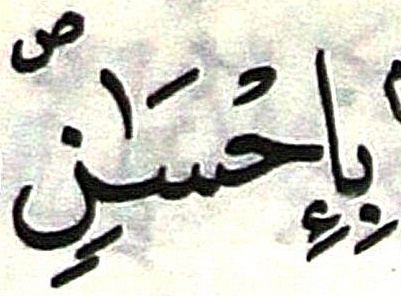 بِإِحْسَٰنٍ ص